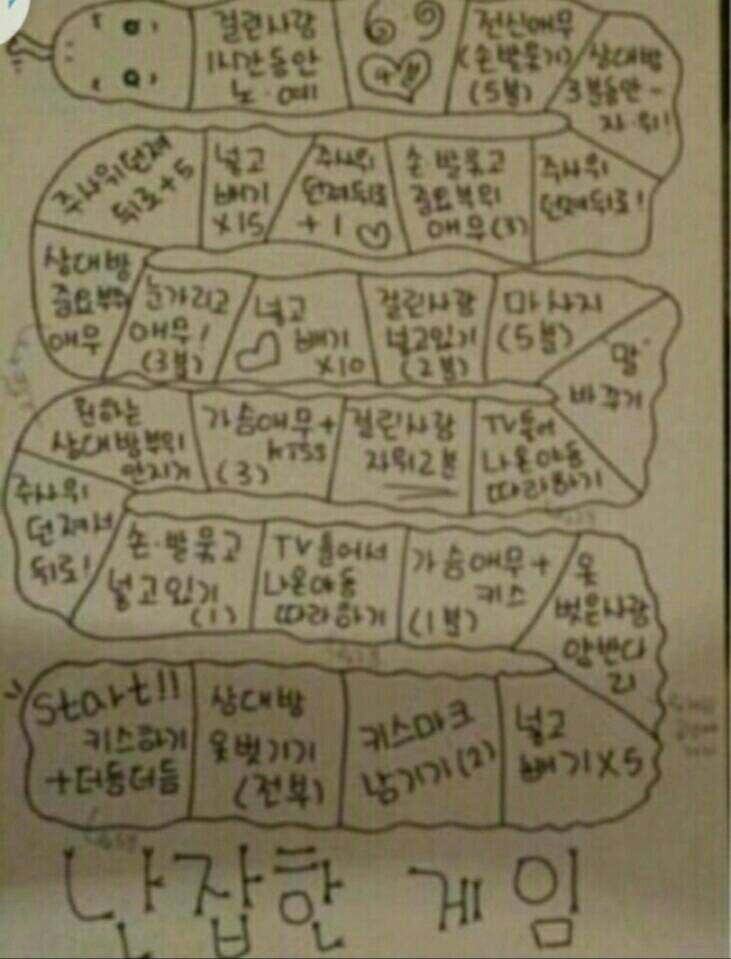 걸린사람
1시간동안
노·예
69
전신애무
(손발묶기)
(5분)
상대방
3분동안~
자·위!
주사위던져
뒤로+5
넣고
빼기
x15
주사위
던져뒤로
+1
손·발묶고
중요부위
애무(3)
주사위
던져뒤로!
상대방
중요부위
애무
눈가리고
애무!
(3분)
넣고
빼기
x10
걸린사람
넣고있기
(2분)
마사지
(5분)
"말"
바꾸기
원하는
상대방부위
만지기
가슴애무+
kiss
(3)
걸린사람
자위2분
TV틀어
나온야동
따라하기
주사위
던져서
뒤로!
손·발묶고
넣고있기
(1)
TV틀어서
나온야동
따라하기
가슴애무+
키스
(1분)
옷
벗은사람
start!!
키스하기
+더듬더듬
상대방
옷벗기기
(전부)
키스마크
남기기(2)
넣고
빼기x5
난잡한 게임